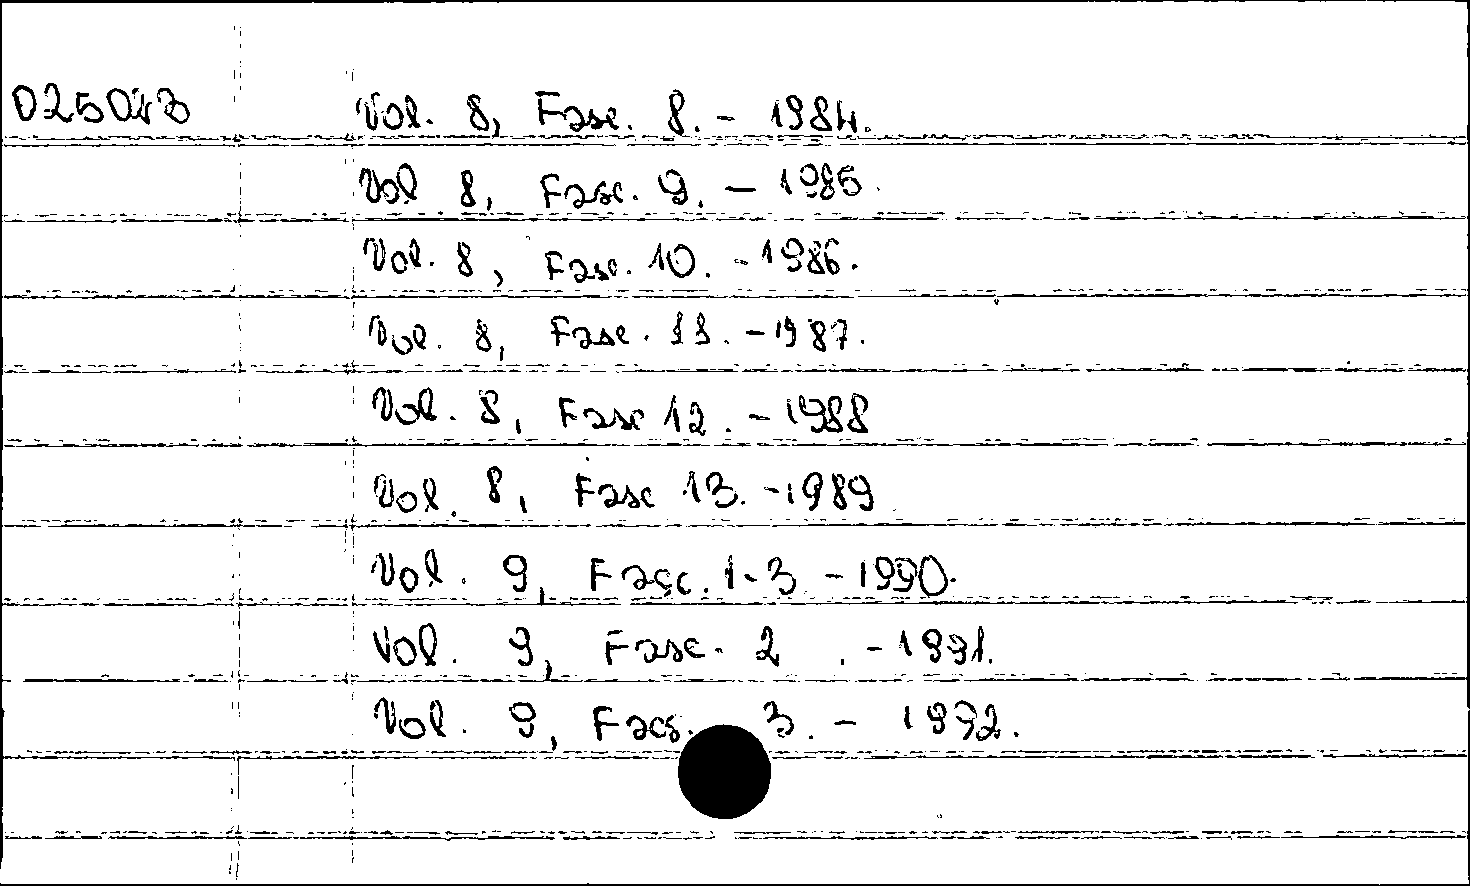 025043 Vol. 8, Fasc. 8. - 1984.
Vol 8, Fasc. 9. - 1985.
Vol. 8, Fasc. 10. - 1986.
Vol. 8, Fasc. 11. - 1987.
Vol. 8, Fasc 12. - 1988
Vol. 8, Fasc 13. - 1989
Vol. 9, Fasc. 1-3 - 1990.
Vol. 9, Fasc. 2 . - 1991.
Vol. 9, Facs. 3. - 1992.